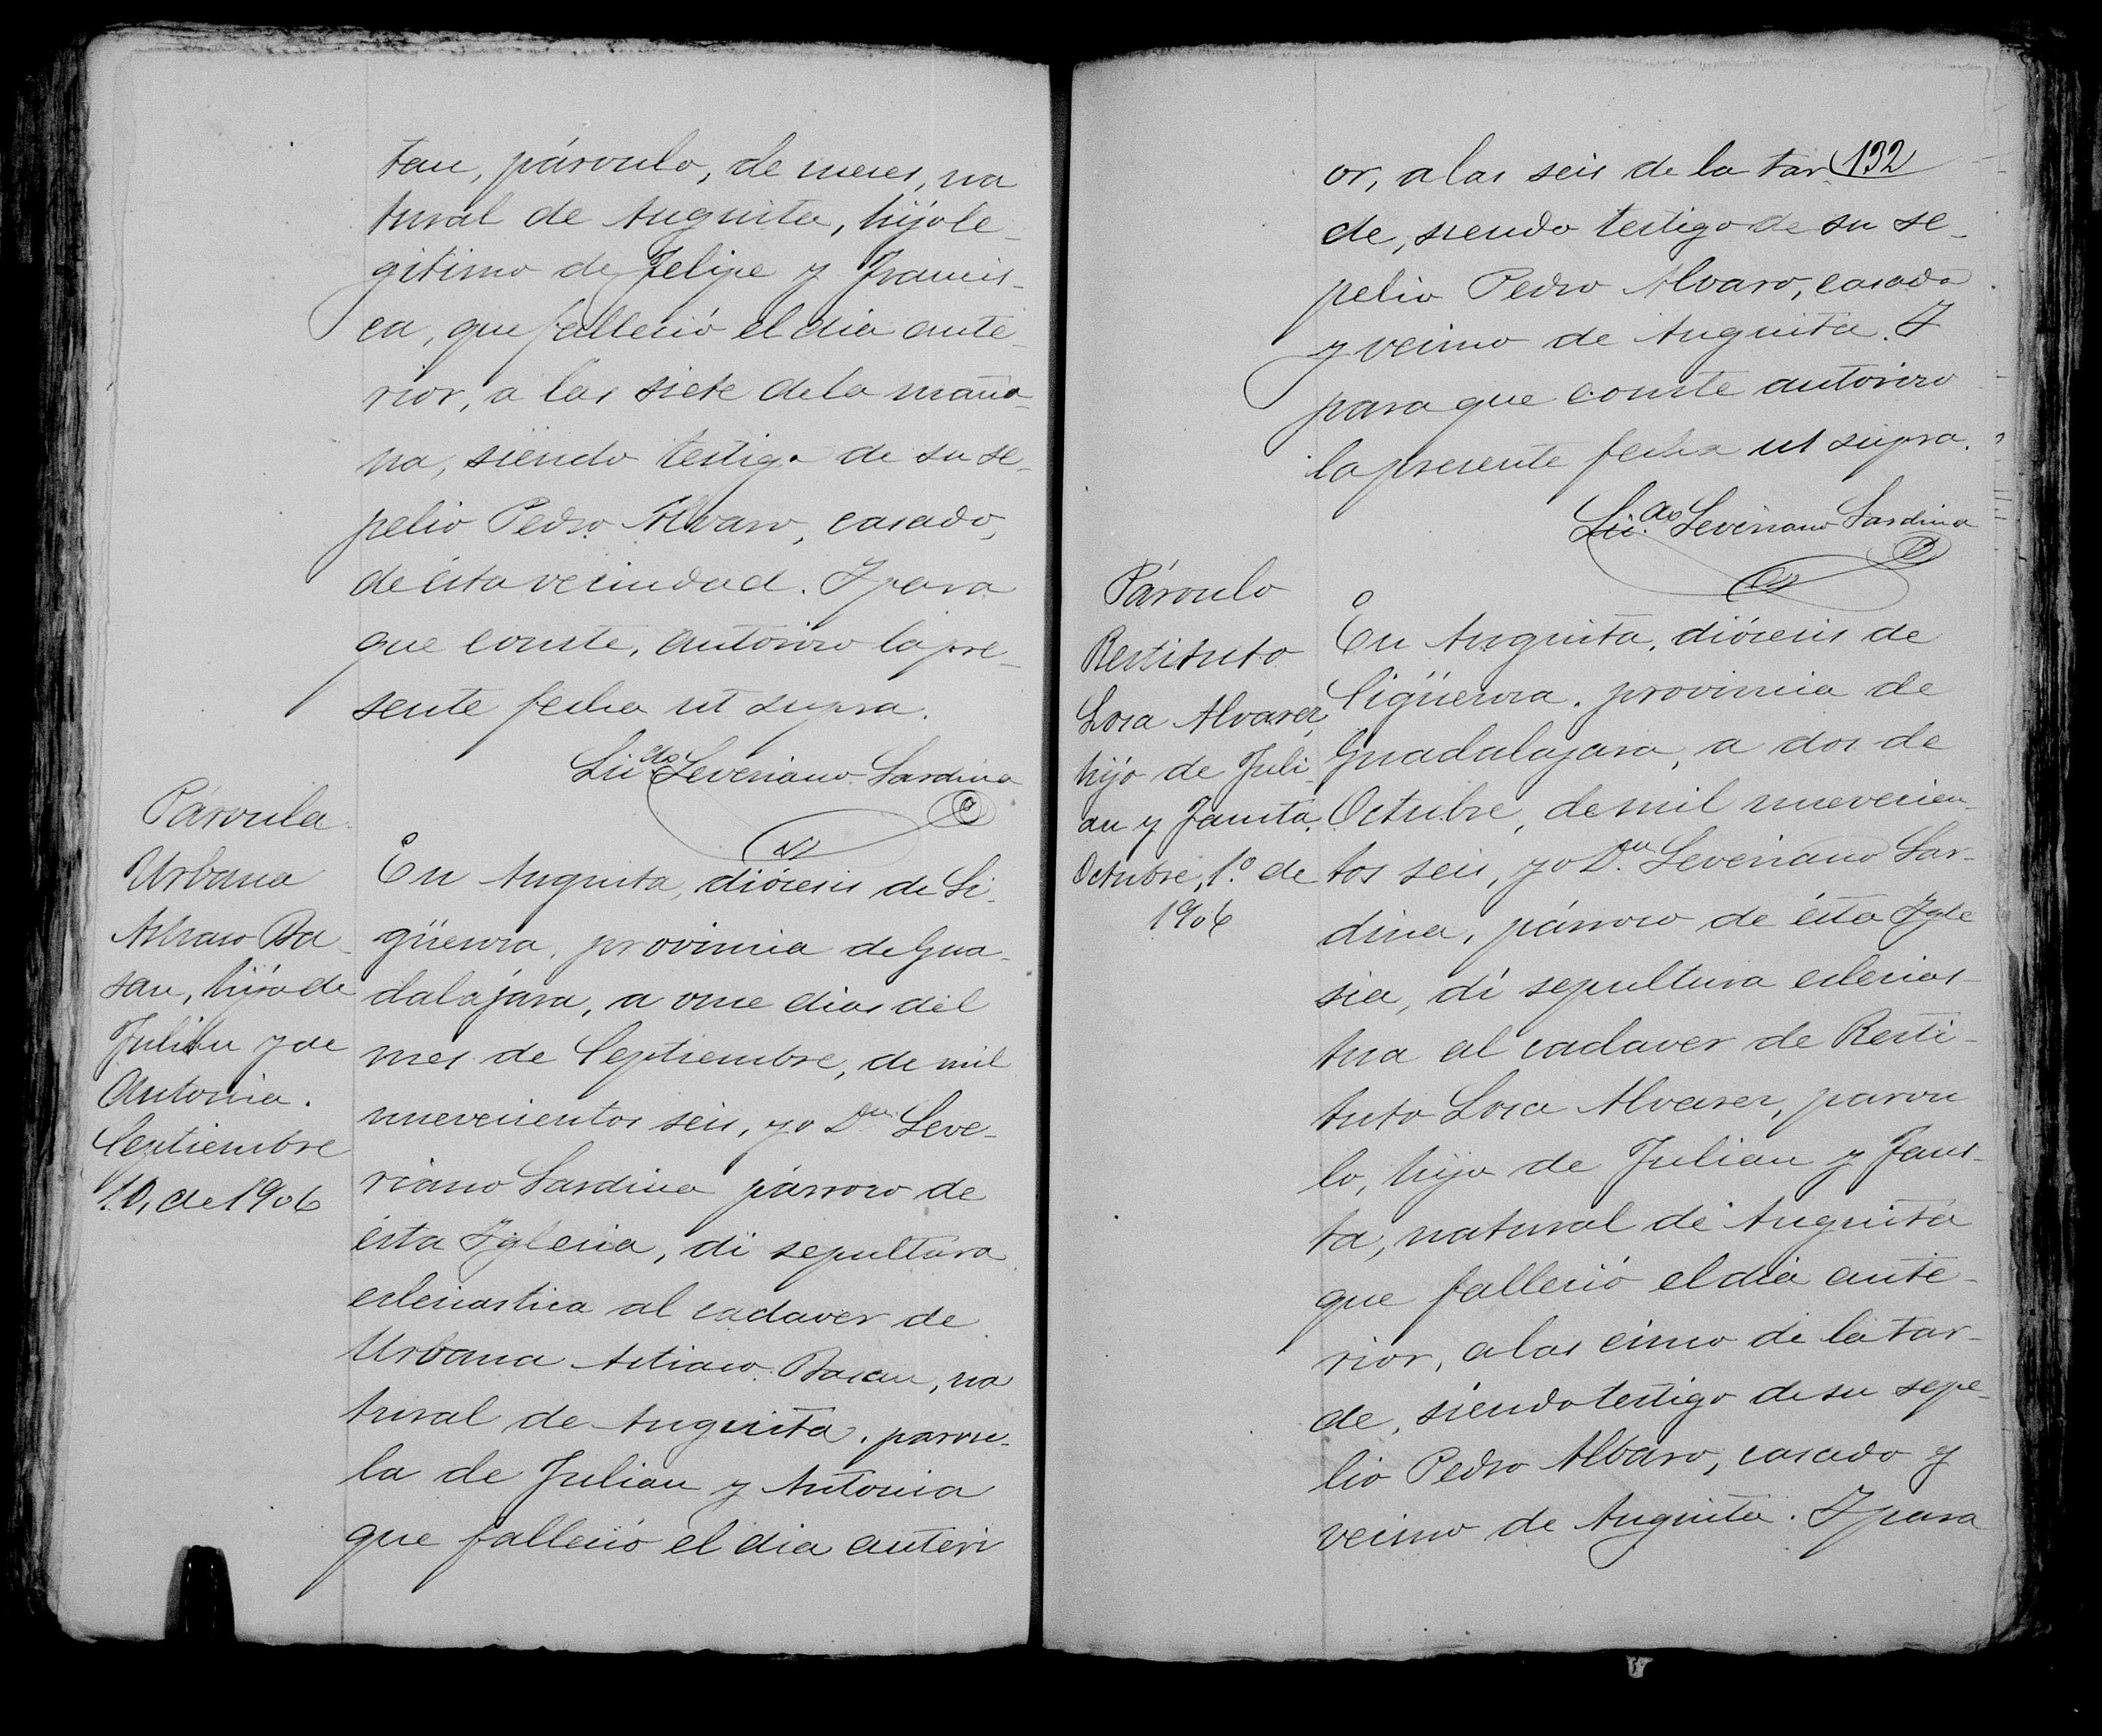 tan, párvulo, de meses, na
tural de Anguita, hijo le-
gitimo de Felipe y Francis-
ca, que falleció el dia ante
rior, a las siete de la maña-
na, siendo testigo de su se-
pelio Pedro Alvaro, casado,
de ésta vecindad. Y para
que conste, autorizo la pre-
sente fecha ut supra.
Licdo Severiano Sardina
Párvula
Urbana
Ba-
san, hija de
Julian y de
Antonia.
Septiembre
10, de 1906
En Anguita, diócesis de Si-
güenza, provincia de Gua-
dalajara, a once dias del
mes de Septiembre, de mil
nuevecientos seis, yo Dn Seve-
riano Sardina párroco de
ésta Iglesia, dí sepultura
eclesiastica al cadaver de
Urbana Basan, na
tural de Anguita, parvu-
la de Julian y Antonia
que falleció el dia anteri
132
or, a las seis de la tar
de, siendo testigo de su se-
pelio Pedro Alvaro, casado
y vecino de Anguita. Y
para que conste autorizo
la presente fecha ut supra.
Licdo Severiano Sardina
Párvulo
Restituto
Losa Alvarez,
hijo de Juli-
an y Fausta.
Octubre, 1º de
1906
En Anguita, diócesis de
Sigüenza, provincia de
Guadalajara, a dos de
Octubre, de mil nuevecien-
tos seis, yo Dn Severiano Sar-
dina, párroco de ésta Igle
sia, dí sepultura eclesias-
tica al cadaver de Resti-
tuto Losa Alvarez, parvu
lo, hijo de Julian y Faus-
ta, natural de Anguita
que falleció el dia ante-
rior, a las cinco de la tar-
de, siendo testigo de su sepe-
lio Pedro Albaro, casado y
vecino de Anguita. Y para